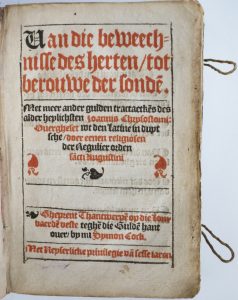 Uan die beweech-
nisse des herten/tot
berouwe der sondē.
Met meer ander gulden tractaetkēs des
alder heylichsten Joannis Chrysostomi:
Ouergheset wt den Latine in duyt
sche/doer eenen religiosen
der Regulier orden
sācti Augustini
Gheprent Thantwerpē op die Lom
baerdē veste teghē die Guldē hant
ouer/by mi Symon Cock.
Met Keyserlicke priuilegie vā sesse iarem